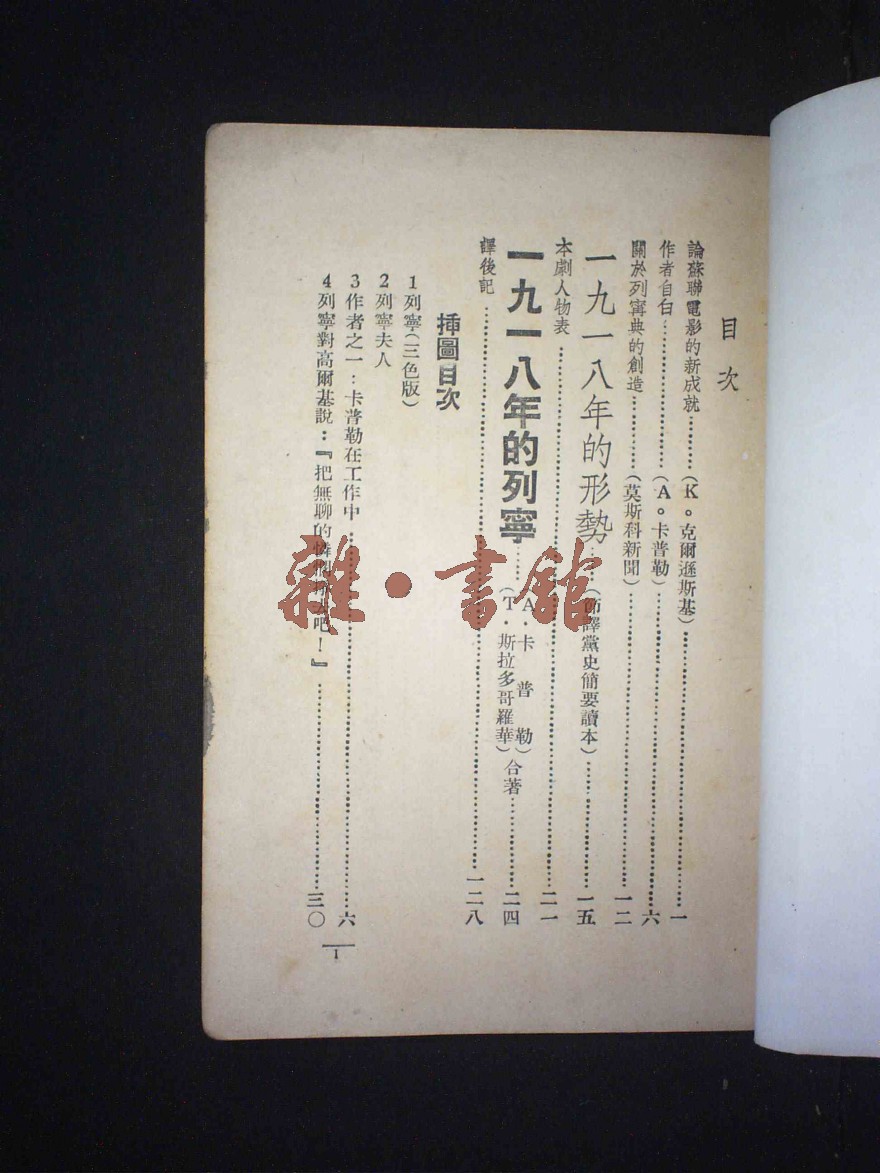 目次
論蘇聯電影的新成就…………(K。克爾遜斯基)…………一
作者自白…………(A。卡普勒)…………六
關於列寧典的創造…………(莫斯科新聞)…………一二
一九一八年的形勢……(節譯黨史簡要讀本)……一五
本劇人物表…………二一
一九一八年的列寧……(A・卡普勒 T・斯拉多哥羅華)合著…………二四
譯後記…………一二八
插圖目次
1列寧(三色版)
2列寧夫人
3作者之一:卡普勒在工作中…………六
4列寧對高爾基說:『把無聊的憐憫 吧!』…………三〇
I
雜・書館